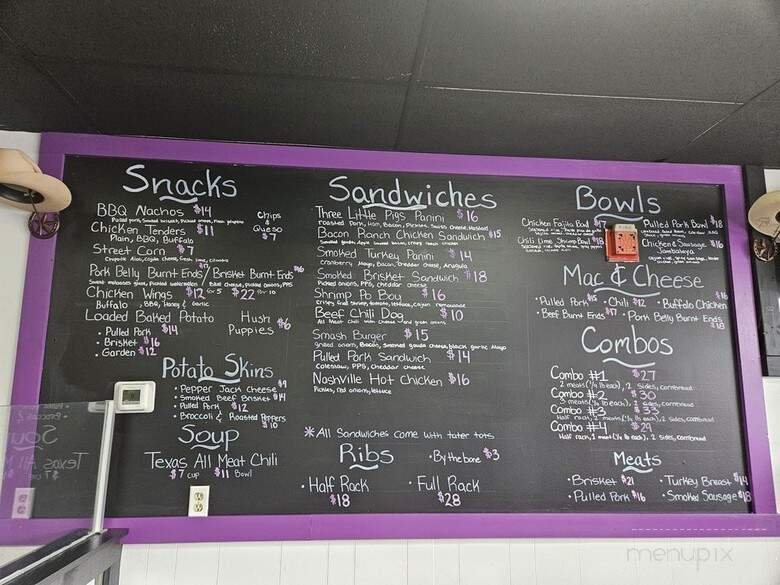 Snacks
BBQ Nachos $14
Pulled pork, Smoked brisket, Pickled onions, fresh
Chicken Tenders $11
Plain, BBQ, Buffalo
Street Corn $7
Chipotle Aioli, cojita cheese, fresh lime, cilantro
Chips & Queso $7
Pork Belly Burnt Ends $17 / Brisket Burnt Ends $16
Sweet molasses glaze, Pickled watermelon Blue cheese, Pickled onions, PPS
Chicken Wings $12 for 5 $22 for 10
Buffalo, BBQ, Honey & Garlic
Loaded Baked Potato
• Pulled Pork $14
• Brisket $16
• Garden $12
Hush Puppies $6
Potato Skins
• Pepper Jack Cheese $9
• Smoked Beef Brisket $14
• Pulled Pork $12
• Broccoli & Roasted Peppers $10
Soup
Texas All Meat Chili
$7 cup $11 Bowl
Sandwiches
Three Little Pigs Panini $16
roasted Pork, Ham, Bacon, Pickles, Swiss Cheese, Mustard
Bacon Ranch Chicken Sandwich $15
Smoked Turkey Panini $14
Cranberry Mayo, Bacon, Cheddar Cheese, Arugula
Smoked Brisket Sandwich $18
Pickled onions, PPS, cheddar cheese
Shrimp Po Boy $16
Crispy fried Shrimp, tomato, lettuce, cajun remoulade
Beef Chili Dog $10
All Meat Chili with cheese and green onions
Smash Burger $15
grilled onions, Bacon, Smoked gouda cheese, black garlic Mayo
Pulled Pork Sandwich $14
Coleslaw, PPS, Cheddar cheese
Nashville Hot Chicken $16
Pickles, red onions, lettuce
*All Sandwiches come with tater tots
Ribs
• By the bone $3
• Half Rack $18
• Full Rack $28
Bowls
Chicken Fajita Bowl
Pulled Pork Bowl $18
Chili Lime Shrimp Bowl $18
Chicken & Sausage Jambalaya $16
Mac & Cheese
• Pulled Pork $15 • Chili $12 • Buffalo Chicken $16
• Beef Burnt Ends $17 • Pork Belly Burnt Ends $18
Combos
Combo #1 $27
2 meats (1/4 lb each), 2 sides, cornbread
Combo #2 $30
3 meats (1/4 lb each), 2 sides, cornbread
Combo #3 $33
Half rack, 2 meats (1/4 lb each), 2 sides, cornbread
Combo #4 $29
Half rack, 1 meat (1/4 lb), 2 sides, cornbread
Meats
• Brisket $21 • Turkey Breast $14
• Pulled Pork $16 • Smoked Sausage $18
menupix